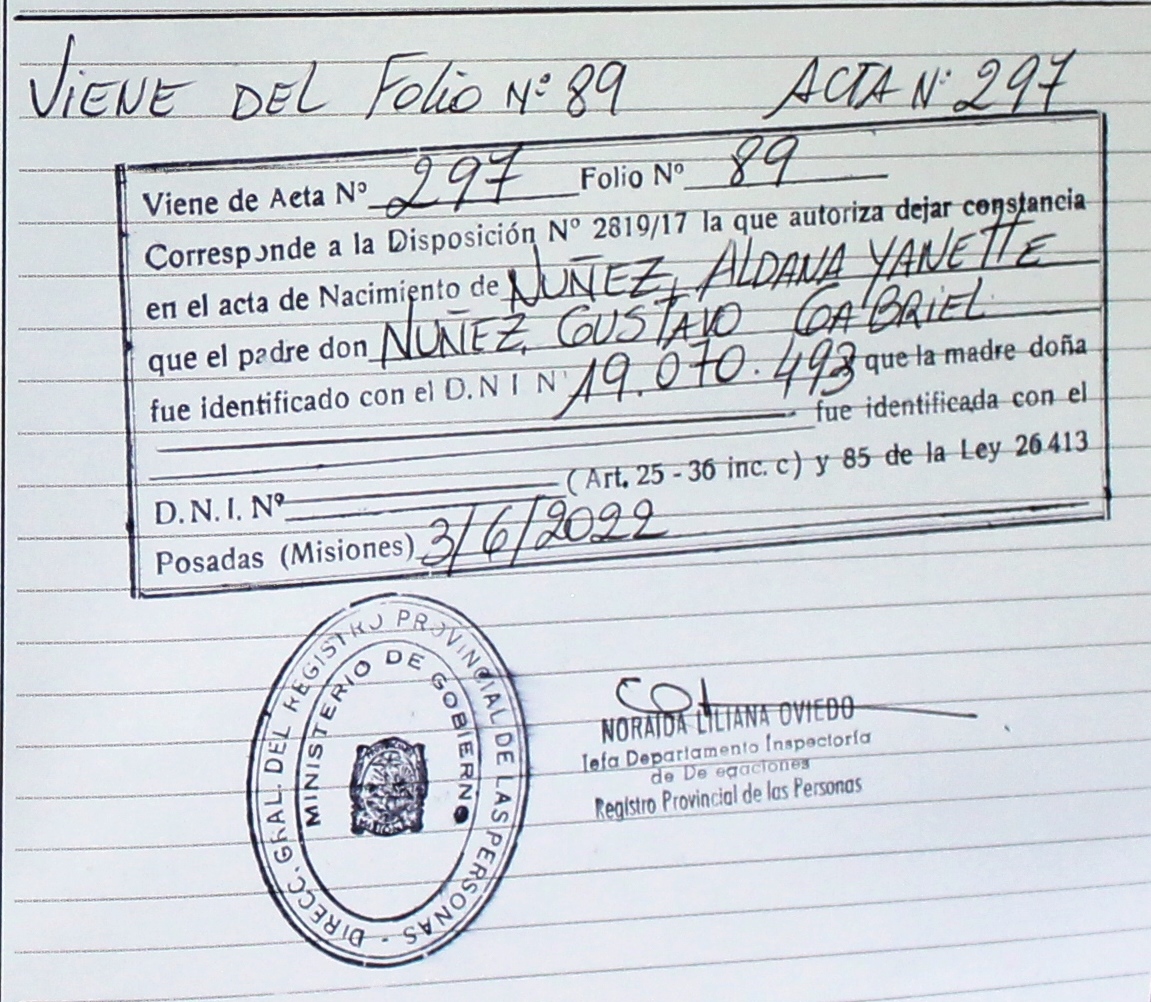 VIENE DEL FOLIO Nº 89 ACTA Nº 297
Viene de Acta Nº 297 Folio Nº 89
Corresponde a la Disposición Nº 2819/17 la que autoriza dejar constancia
en el acta de Nacimiento de NUÑEZ, ALDANA YANETTE
que el padre don NUÑEZ, GUSTAVO GABRIEL
fue identificado con el D.N I N° 19.070.493 que la madre doña
fue identificada con el
D.N.I. Nº (Art. 25 - 36 inc. c) y 85 de la Ley 26413
Posadas (Misiones) 3/6/2022
DIRECC. GRAL. DEL REGISTRO PROVINCIAL DE LAS PERSONAS -
MINISTERIO DE GOBIERNO
NORAIDA LILIANA OVIEDO
Jefa Departamento Inspectoría
de De egaciones
Registro Provincial de las Personas